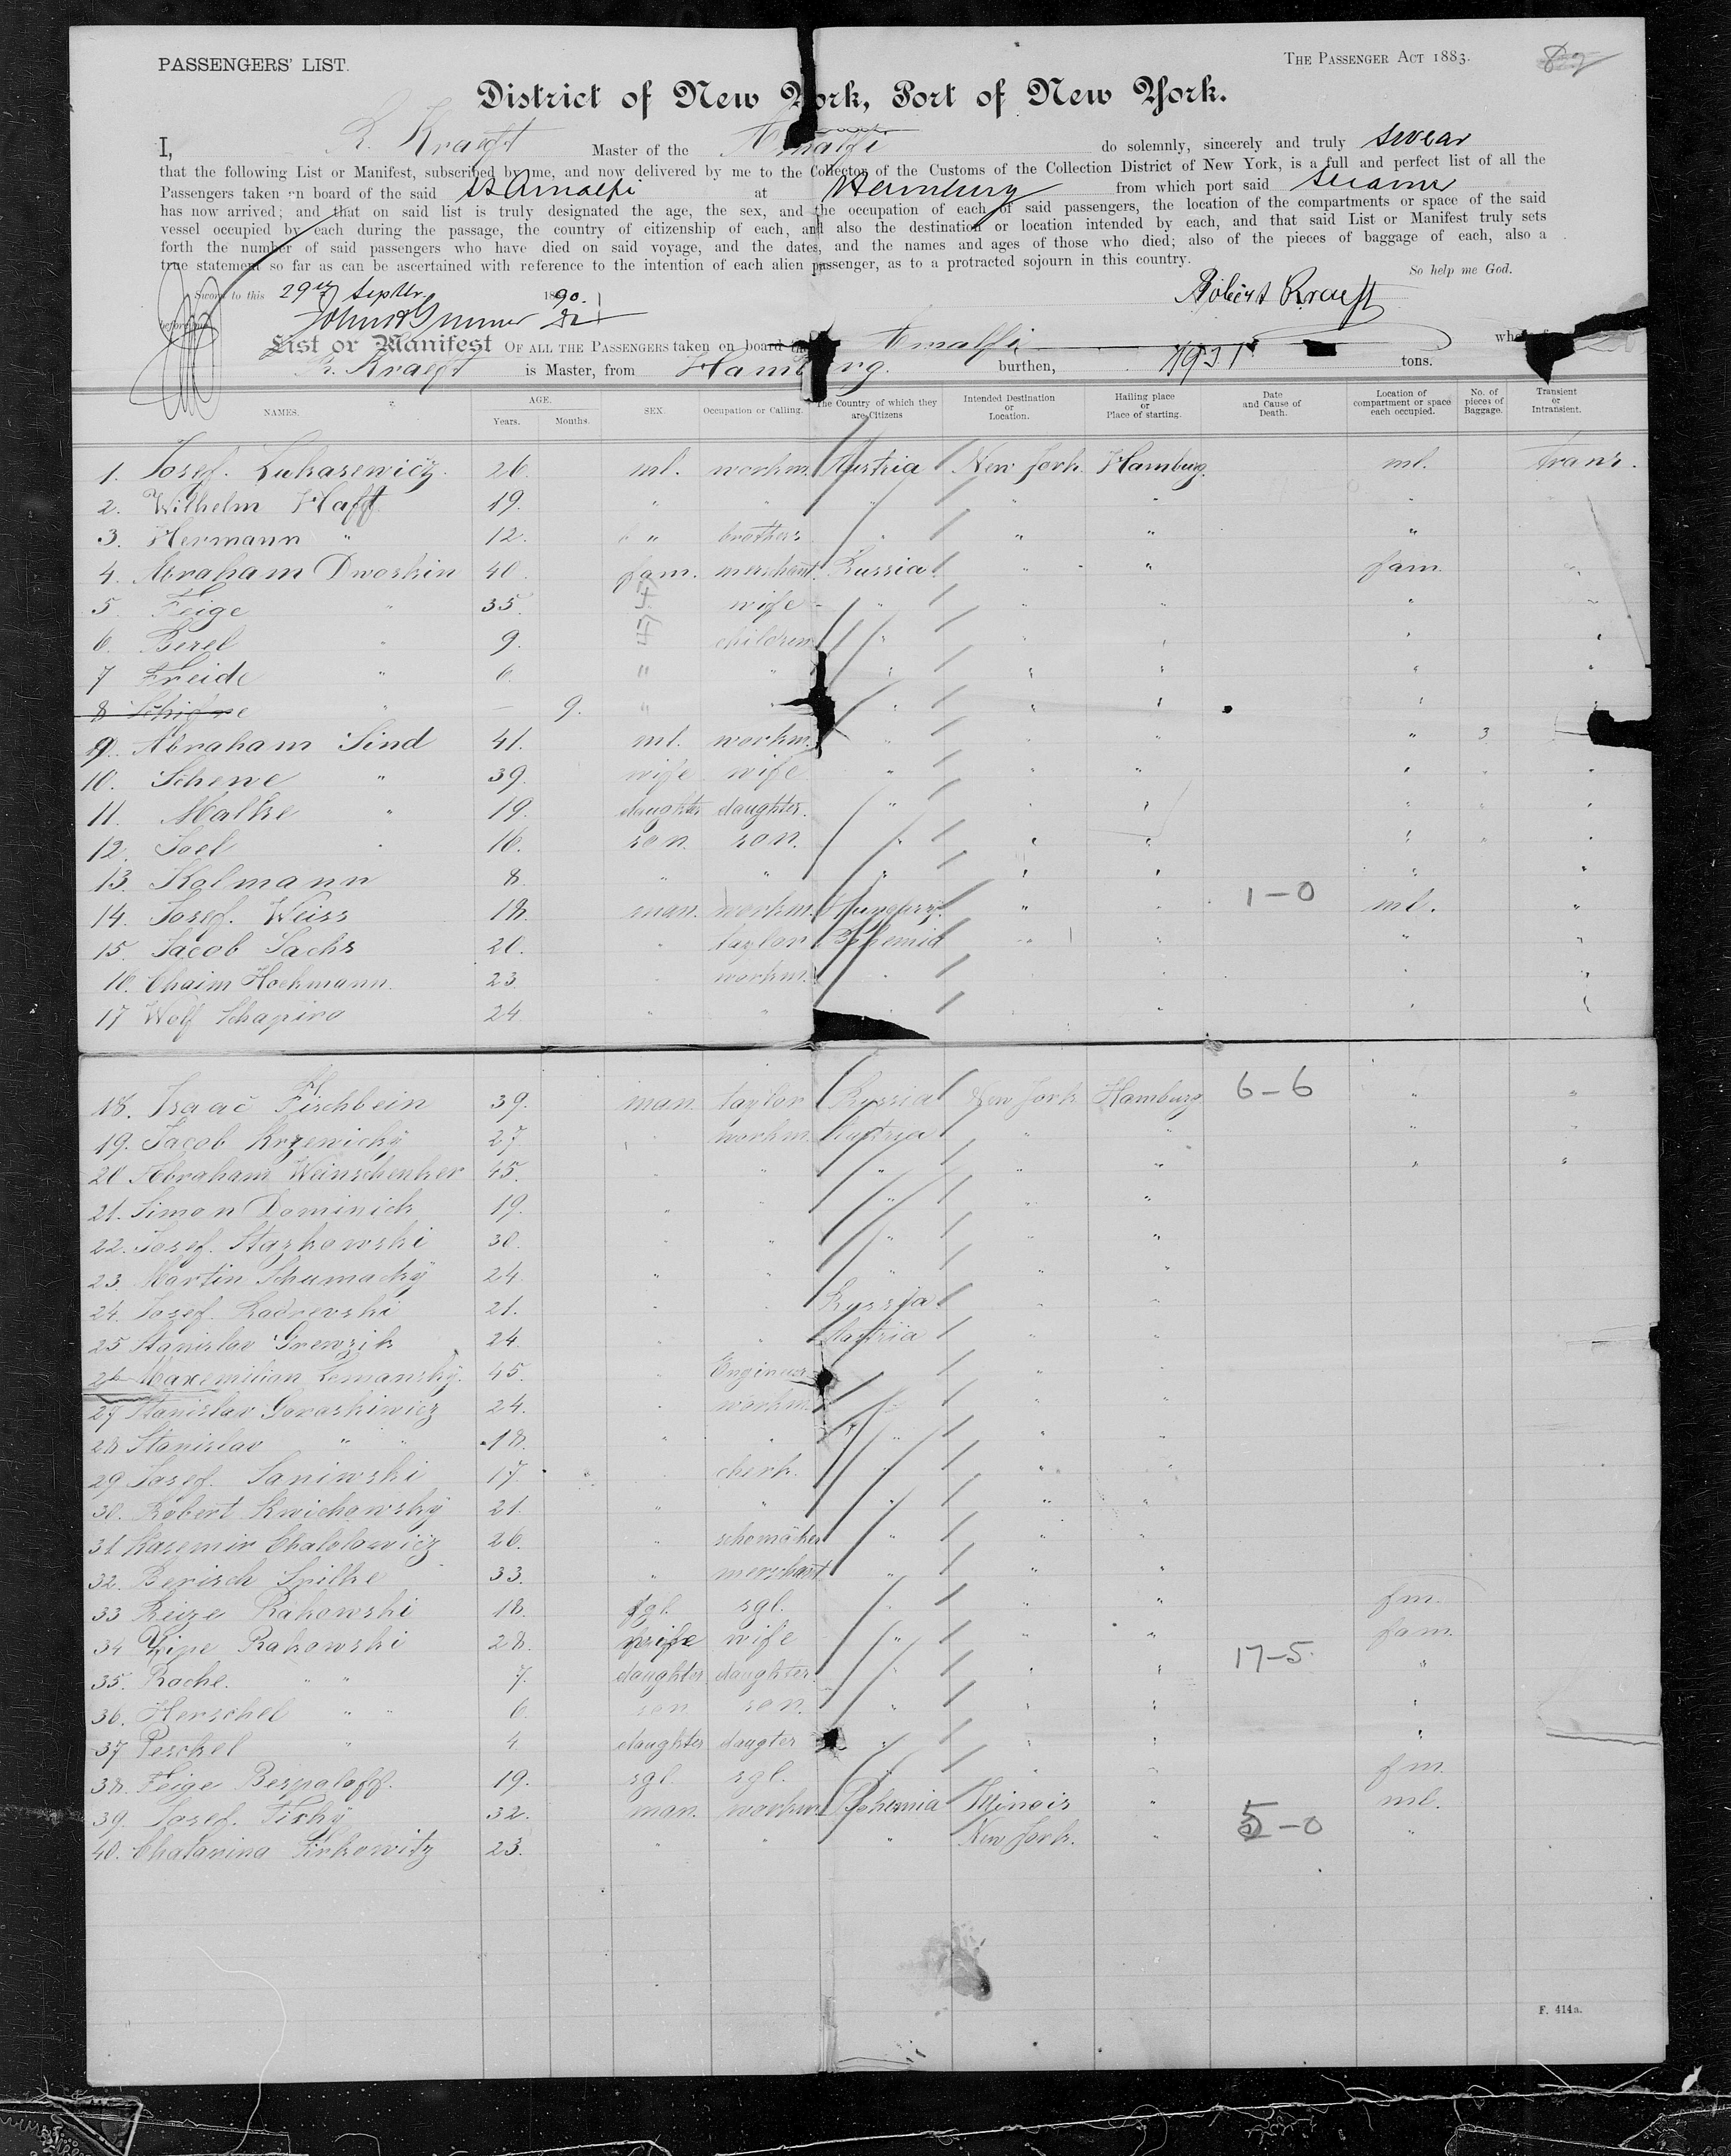 PASSENGERS' LIST.
THE PASSENGER ACT 1883.
82
District of New York, Port of New York.
I, R. Kraeft Master of the Amalfi do solemnly, sincerely and truly swear
that the following List or Manifest, subscribed by me, and now delivered by me to the Collector of the Customs of the Collection District of New York, is a full and perfect list of all the
Passengers taken on board of the said SS Amalfi at Hamburg from which port said steamer
has now arrived; and that on said list is truly designated the age, the sex, and the occupation of each of said passengers, the location of the compartments or space of the said
vessel occupied by each during the passage, the country of citizenship of each, and also the destination or location intended by each, and that said List or Manifest truly sets
forth the number of said passengers who have died on said voyage, and the dates, and the names and ages of those who died; also of the pieces of baggage of each, also a
true statement so far as can be ascertained with reference to the intention of each alien passenger, as to a protracted sojourn in this country.
So help me God.
Sworn to this 29th Septbr. 1890.
Robert Kraeft
before me
List or Manifest OF ALL THE PASSENGERS taken on board the Amalfi
R. Kraeft is Master, from Hamburg. burthen, tons.
NAMES. AGE. Years. Months. SEX. Occupation or Calling. The Country of which they are Citizens Intended Destination or Location. Hailing place or Place of starting. Date and Cause of Death. Location of compartment or space each occupied. No. of pieces of Baggage. Transient or Intransient.
1. Josef. Lukasewicz. 26. ml. workm. Austria New York Hamburg. ml. Trans.
2. Wilhelm Hafft 19. " " " " " "
3. Hermann " 12. " brothers " " " "
4. Abraham Dworkin 40. fam. merchant. Russia. " " fam. "
5 Feige " 35. wife " " " " "
6. Berel " 9. children " " " " "
7 Freide " 6. " " " " " " "
8 " 9. " " " " " " "
9. Abraham Sind 41. ml. workm. " " " " 3
10. Schewe " 39. wife wife " " " " " "
11. Malke " 19. daughter daughter. " " " " " "
12. Joel " 16. son. son. " " " " " "
13. Kalmann 8. " " " " " " "
14. Josef. Weiss 18. man. workm. Hungary. " " 1-0 ml. "
15. Jacob Sachs 20. " taylor Bohemia " " " "
16. Chaim Hochmann. 23. " workm. " " " "
17 Wolf Schapiro 24. " " " " " "
18. Isaac Fischbein 39. man. taylor Russia New York Hamburg 6-6 " "
19. Jacob Krzewicky 27 " workm. Austria " " " "
20 Abraham Weinschenker 45. " " " " " " "
21. Simon Dominick 19. " " " " "
22. Josef. Stazkowski 30. " " " " "
23. Martin Schumacky 24 " " " " "
24. Josef. Radrevski 21. " " Russia " "
25 Stanislav Grewzik 24. " " Austria " "
26 Maxemilian Lomansky. 45. " Engineer " "
27 Stanislav Goraskiwicz 24. " workm. " " "
28 Stanislav " " 18. " " " " "
29 Josef. Saniwski 17. " clerk. " " "
30. Robert Kwichowsky 21. " " " " "
31 Kasemir 26. " schomaker " " "
32. Berisch 33. " merchant " " "
33 Reize Rakowski 18. sgl. sgl. " " " fm.
34 Zipe Rakowski 28. wife wife " " " fam.
35. Rache. " " 7. daughter daughter. " " " 17-5. "
36. Herschel " " 6. son son. " " " "
37 Peschel " 4 daughter daugter " " " "
38. Feige Bespaloff. 19. sgl. sgl. " " " fm.
39. Josef. Tichy 32. man. workm. Bohemia Illinois " ml.
40. Chatarina Firkowitz 23. " " " New York. " 5-0 "
F. 414a.